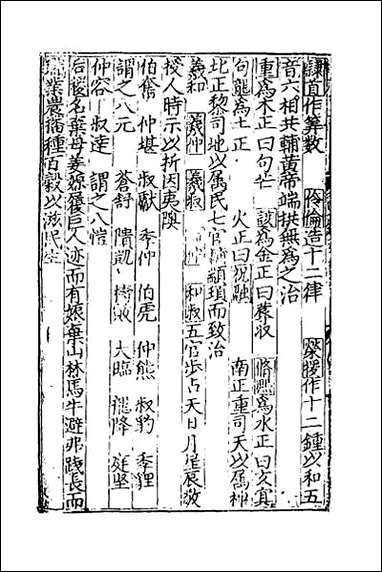 隸首作算數 伶倫造十二律 榮援作十二鍾以和五
音六相共輔黃帝端拱無為之治
重為木正曰句芒 該為金正曰蓐収 脩熙為水正曰玄冥
句龍為土正 火正曰祝融 南正重司天以属神
北正黎司地以属民七官輔顓頊而致治
羲和 羲仲 羲叔 和叔五官歩占天日月星辰敬
授人時示以折因夷隩
伯奮 仲堪 叔獻 季仲 伯虎 仲熊 叔豹 季貍
謂之八元 蒼舒 隤凱 檮戭 大臨 龍降 庭堅
仲容 叔達 謂之八愷
后稷名棄母姜嫄履巨人迹而有娠棄山林馬牛避弗踐長而
業農播種百穀以滋民生